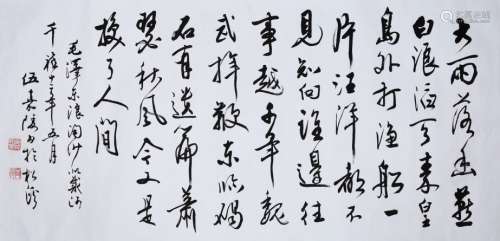 大雨落幽燕
白浪滔天秦皇
島外打漁船一
片汪洋都不
見知向誰邊往
事越千年魏
武揮鞭東臨碣
石有遺篇蕭
瑟秋風今又是
換了人間
毛澤東浪淘沙北戴河
千禧十三年五月
伍嘉陵书於